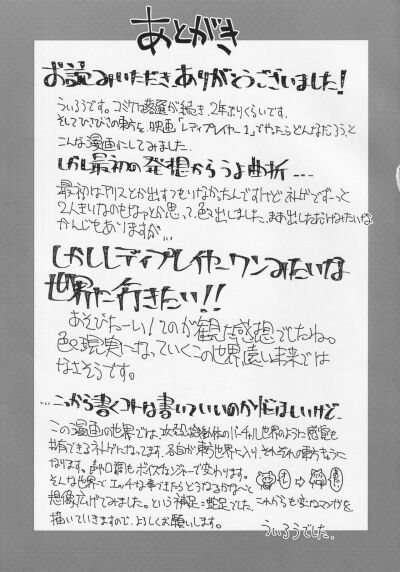 あとがき
お読みいただき、ありがとうございました!
ういろうです。コミケ落選が続き、2年ぶりくらいです。
そしてひさびさの東方を、映画「レディプレイヤー1」でやったらどんなだろうと
こんな漫画にしてみました。
しかし最初の発想からうよ曲折...
最初はアリスとか出すつもりなかったんですけどネトゲでずーっと
2人きりなのもなぁとか思って色々出しました。まあ出しただけみたいな
かんじもありますが...
しかしレディプレイヤーワンみたいな
世界に行きたい!!
あそびたーい!てのが観た感想でしたね。
色々現実へなっていくこの世界、遠い未来では
なさそうです。
...ここから書くコトは書いていいのか悩ましいけど...
この漫画の世界では、のバーチャル世界のように感覚も
共有できるネトゲになってます。各自が東方世界に入りそれぞれの東方キャラに
なります。声や口調もボイスチェンジャーで変わります。
そんな世界でエッチな事できたらどうなるかな〜と
想像広げてみました。という補足・蛇足でした。これからも変なマンガを
描いていきますので、よろしくお願いします。
ういろうでした。